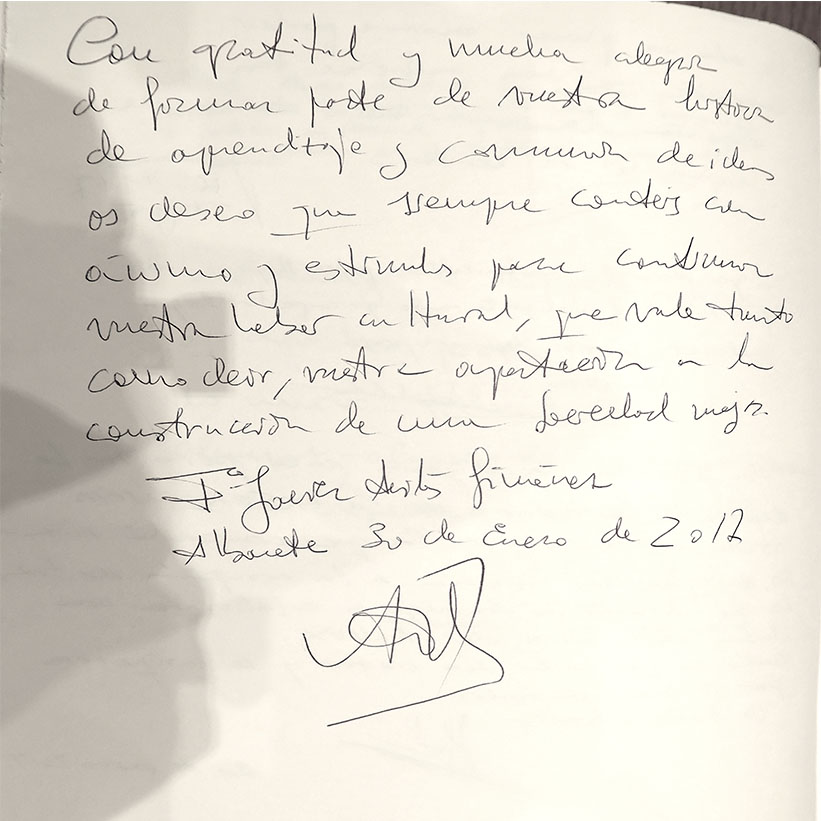 Con gratitud y mucha alegria
de formar parte de vuestra historia
de aprendizaje y comunion de ideas
os deseo que siempre contéis con
ánimo y estimulos para continuar
vuestra labor cultural, que vale tanto
como decir, vuestra aportación a la
construcción de una sociedad mejor.
Fº Javier Avilés Jiménez
Albacete 30 de Enero de 2017